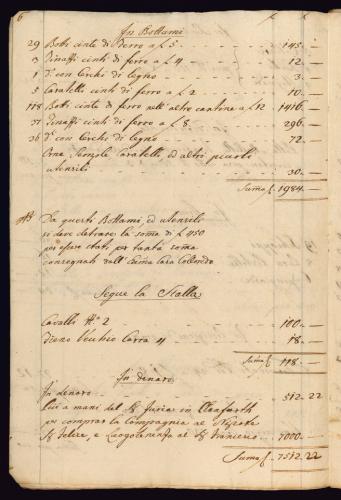 6 In Bottami £
29 Botti cinte di Ferro a £ 5 145. —
3 Pinassi cinti di ferro a £ 4 12. —
1 d.º con Cerchi di legno 3. —
5 Caratelli cinti di ferro a £ 2 10. —
118 Botti cinte di ferro nell' altre cantine a £ 12 1416. —
37 Pinassi cinti di ferro a £ 8 296. —
36 d.º con Cerchi di legno 72. —
Orne Caratelli, ed altri piccoli
utensili 30. —
Suma £ 1984. —
NB Da questi Bottami, ed utensili
si deve detrare la soma di £ 450
per esser stati per tanta soma
consegnati dall' Casa Colloredo
Segue la Stalla
Cavalli N.º 2 100. —
Fieno Vechio Carra 4 18. —
Suma £ 118. —
In denaro
In denaro 512.22
Più a mani del Sg.r in
per comprar la Compagnia al Nipote
Sg.r Felice, e Luogotenenza al Sg.r 7000. —
Suma £ 7512.22